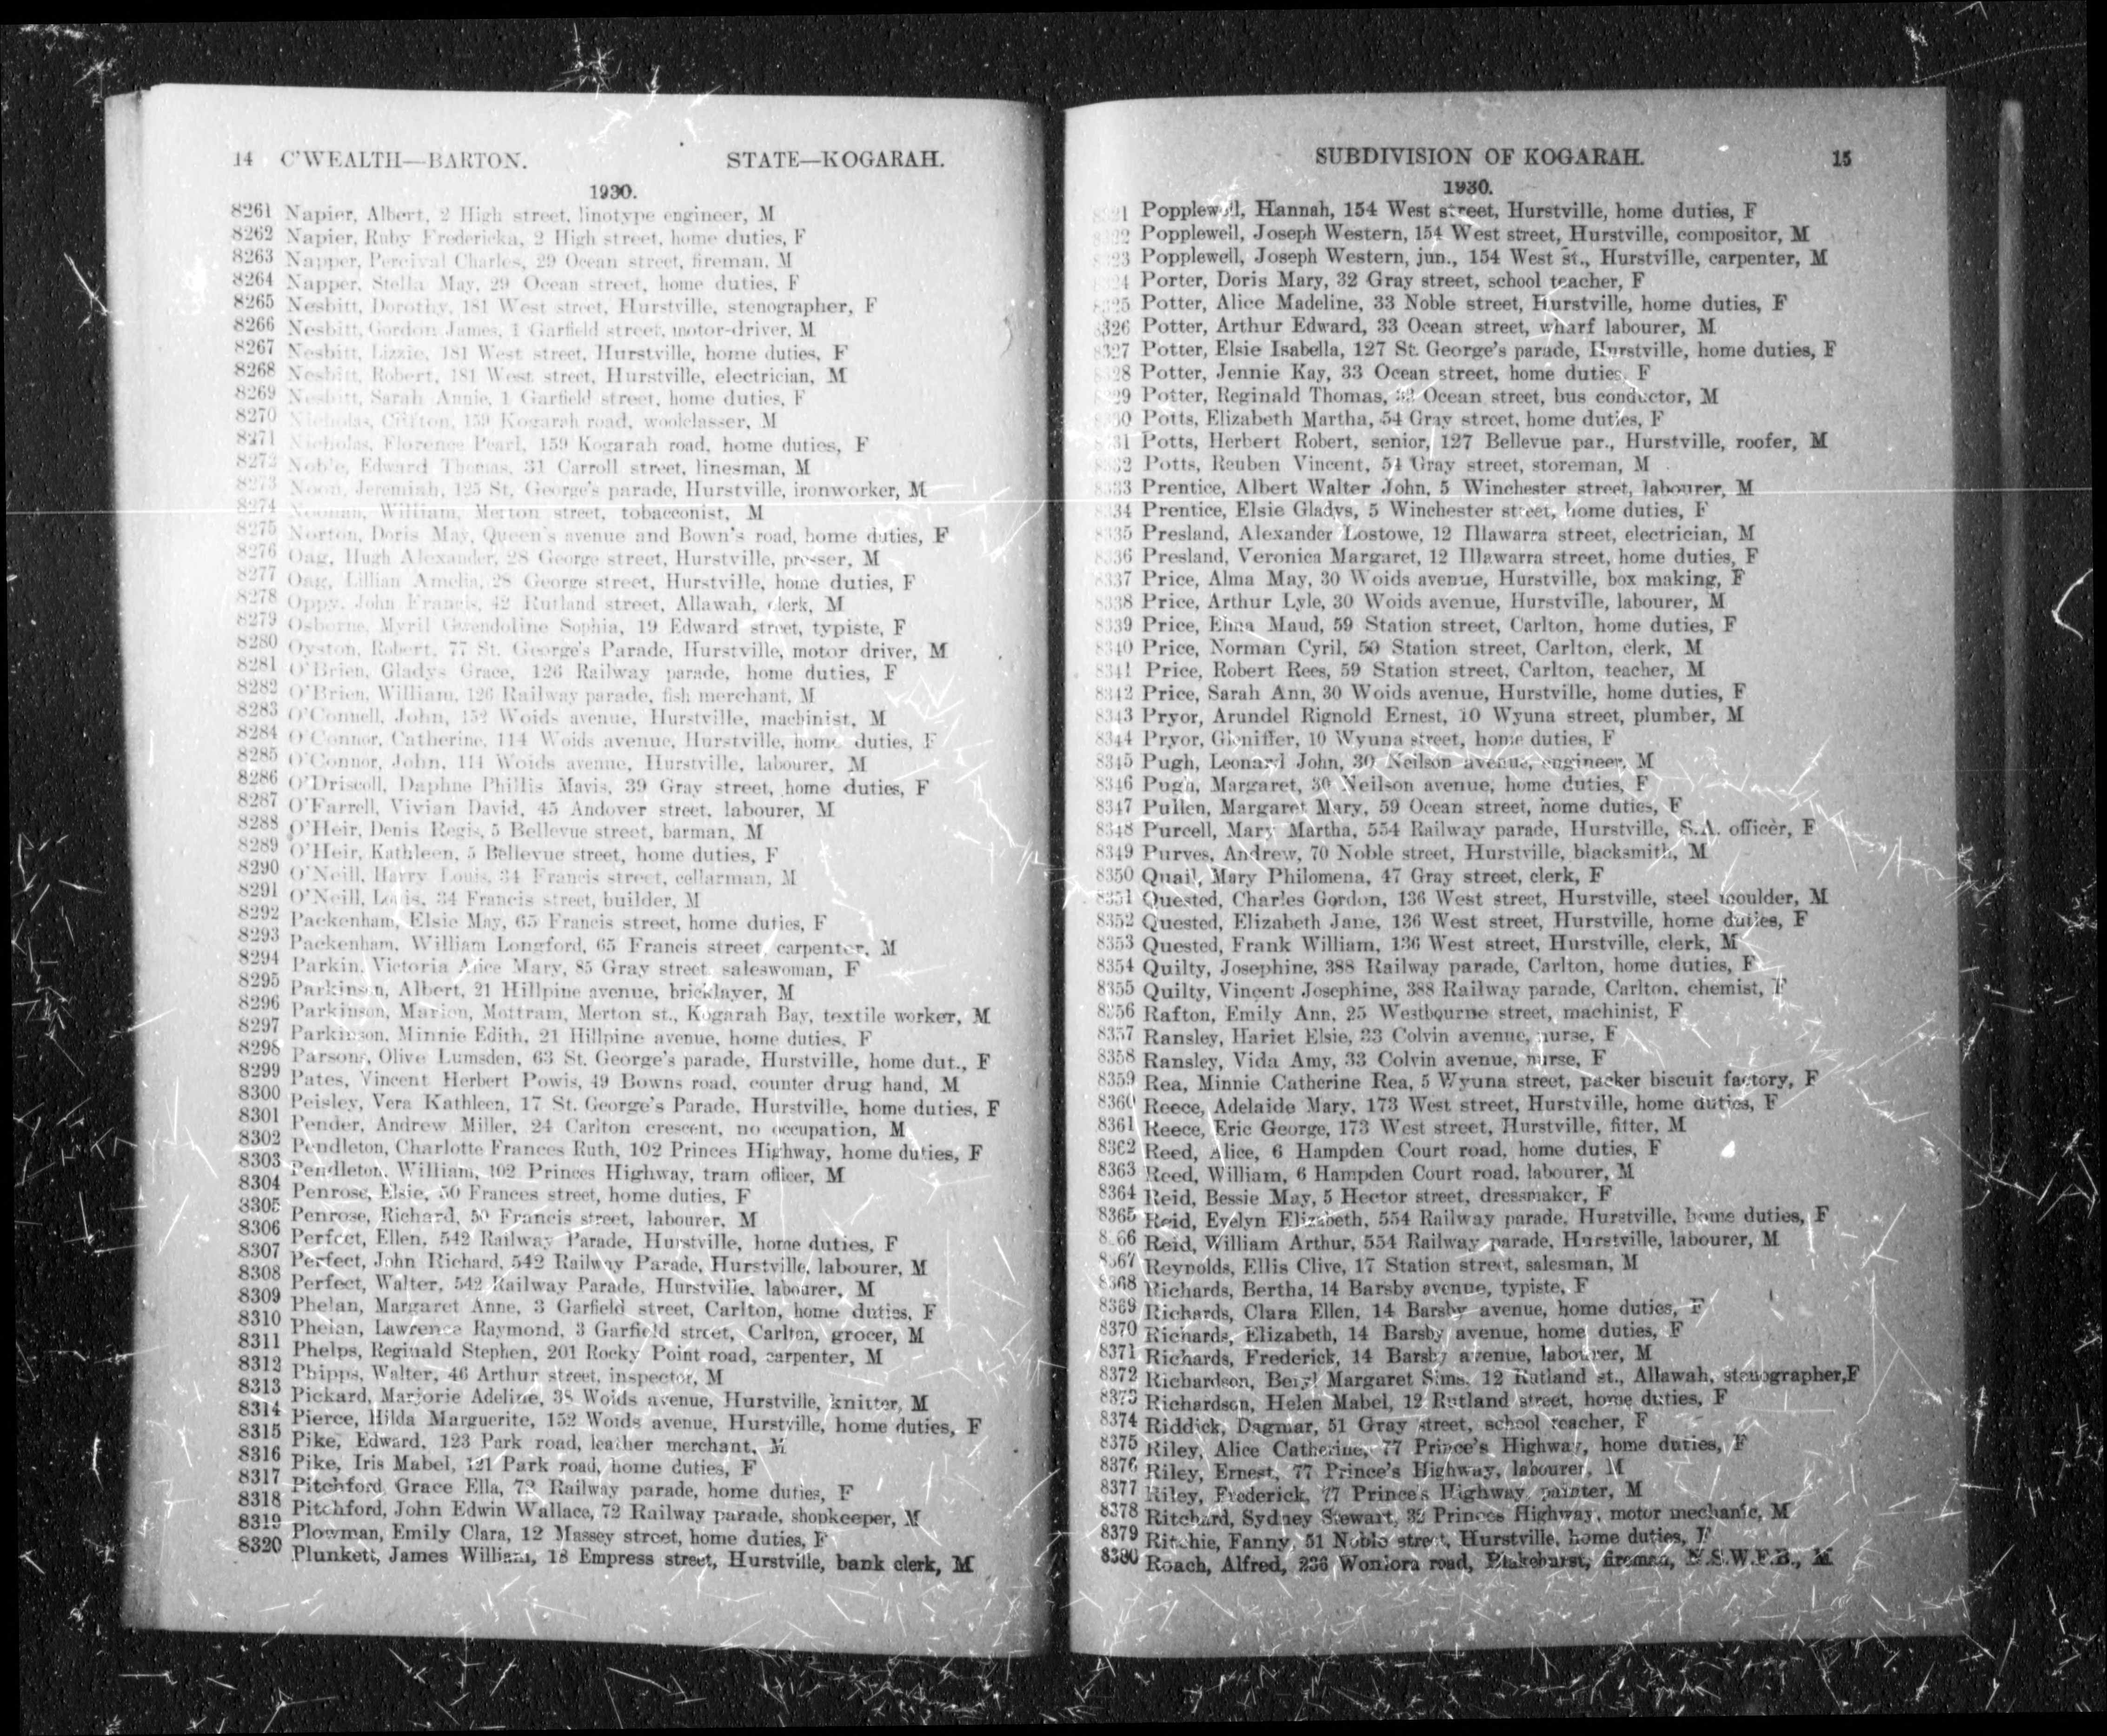 14 C'WEALTH—BARTON. STATE—KOGARAH.
1930.
8261 Napier, Albert, 2 High street, linotype engineer, M
8262 Napier, Ruby Fredericka, 2 High street, home duties, F
8263 Napper, Percival Charles, 29 Ocean street, fireman, M
8264 Napper, Stella May, 29 Ocean street, home duties, F
8265 Nesbitt, Dorothy, 181 West street, Hurstville, stenographer, F
8266 Nesbitt, Gordon James, 1 Garfield street, motor-driver, M
8267 Nesbitt, Lizzie, 181 West street, Hurstville, home duties, F
8268 Nesbitt, Robert, 181 West street, Hurstville, electrician, M
8269 Nesbitt, Sarah Annie, 1 Garfield street, home duties, F
8270 Nicholas, Clifton, 159 Kogarah road, woolclasser, M
8271 Nicholas, Florence Pearl, 159 Kogarah road, home duties, F
8272 Noble, Edward Thomas, 31 Carroll street, linesman, M
8273 Noon, Jeremiah, 125 St. George's parade, Hurstville, ironworker, M
8274 Noonan, William, Merton street, tobacconist, M
8275 Norton, Doris May, Queen's avenue and Bown's road, home duties, F
8276 Oag, Hugh Alexander, 28 George street, Hurstville, presser, M
8277 Oag, Lillian Amelia, 28 George street, Hurstville, home duties, F
8278 Oppy, John Francis, 42 Rutland street, Allawah, clerk, M
8279 Osborne, Myril Gwendoline Sophia, 19 Edward street, typiste, F
8280 Oyston, Robert, 77 St. George's Parade, Hurstville, motor driver, M
8281 O'Brien, Gladys Grace, 126 Railway parade, home duties, F
8282 O'Brien, William, 126 Railway parade, fish merchant, M
8283 O'Connell, John, 152 Woids avenue, Hurstville, machinist, M
8284 O'Connor, Catherine, 114 Woids avenue, Hurstville, home duties, F
8285 O'Connor, John, 114 Woids avenue, Hurstville, labourer, M
8286 O'Driscoll, Daphne Phillis Mavis, 39 Gray street, home duties, F
8287 O'Farrell, Vivian David, 45 Andover street, labourer, M
8288 O'Heir, Denis Regis, 5 Bellevue street, barman, M
8289 O'Heir, Kathleen, 5 Bellevue street, home duties, F
8290 O'Neill, Harry Louis, 34 Francis street, cellarman, M
8291 O'Neill, Louis, 34 Francis street, builder, M
8292 Packenham, Elsie May, 65 Francis street, home duties, F
8293 Packenham, William Longford, 65 Francis street, carpenter, M
8294 Parkin, Victoria Alice Mary, 85 Gray street, saleswoman, F
8295 Parkinson, Albert, 21 Hillpine avenue, bricklayer, M
8296 Parkinson, Marion, Mottram, Merton st., Kogarah Bay, textile worker, M
8297 Parkinson, Minnie Edith, 21 Hillpine avenue, home duties, F
8298 Parsons, Olive Lumsden, 63 St. George's parade, Hurstville, home dut., F
8299 Pates, Vincent Herbert Powis, 49 Bowns road, counter drug hand, M
8300 Peisley, Vera Kathleen, 17 St. George's Parade, Hurstville, home duties, F
8301 Pender, Andrew Miller, 24 Carlton crescent, no occupation, M
8302 Pendleton, Charlotte Frances Ruth, 102 Princes Highway, home duties, F
8303 Pendleton, William, 102 Princes Highway, tram officer, M
8304 Penrose, Elsie, 50 Frances street, home duties, F
8305 Penrose, Richard, 50 Francis street, labourer, M
8306 Perfect, Ellen, 542 Railway Parade, Hurstville, home duties, F
8307 Perfect, John Richard, 542 Railway Parade, Hurstville, labourer, M
8308 Perfect, Walter, 542 Railway Parade, Hurstville, labourer, M
8309 Phelan, Margaret Anne, 3 Garfield street, Carlton, home duties, F
8310 Phelan, Lawrence Raymond, 3 Garfield street, Carlton, grocer, M
8311 Phelps, Reginald Stephen, 201 Rocky Point road, carpenter, M
8312 Phipps, Walter, 46 Arthur street, inspector, M
8313 Pickard, Marjorie Adeline, 38 Woids avenue, Hurstville, knitter, M
8314 Pierce, Hilda Marguerite, 152 Woids avenue, Hurstville, home duties, F
8315 Pike, Edward, 123 Park road, leather merchant, M
8316 Pike, Iris Mabel, 121 Park road, home duties, F
8317 Pitchford, Grace Ella, 72 Railway parade, home duties, F
8318 Pitchford, John Edwin Wallace, 72 Railway parade, shopkeeper, M
8319 Plowman, Emily Clara, 12 Massey street, home duties, F
8320 Plunkett, James William, 18 Empress street, Hurstville, bank clerk, M
SUBDIVISION OF KOGARAH. 15
1930.
8321 Popplewell, Hannah, 154 West street, Hurstville, home duties, F
8322 Popplewell, Joseph Western, 154 West street, Hurstville, compositor, M
8323 Popplewell, Joseph Western, jun., 154 West st., Hurstville, carpenter, M
8324 Porter, Doris Mary, 32 Gray street, school teacher, F
8325 Potter, Alice Madeline, 33 Noble street, Hurstville, home duties, F
8326 Potter, Arthur Edward, 33 Ocean street, wharf labourer, M
8327 Potter, Elsie Isabella, 127 St. George's parade, Hurstville, home duties, F
8328 Potter, Jennie Kay, 33 Ocean street, home duties, F
8329 Potter, Reginald Thomas, 33 Ocean street, bus conductor, M
8330 Potts, Elizabeth Martha, 54 Gray street, home duties, F
8331 Potts, Herbert Robert, senior, 127 Bellevue par., Hurstville, roofer, M
8332 Potts, Reuben Vincent, 54 Gray street, storeman, M
8333 Prentice, Albert Walter John, 5 Winchester street, labourer, M
8334 Prentice, Elsie Gladys, 5 Winchester street, home duties, F
8335 Presland, Alexander Lostowe, 12 Illawarra street, electrician, M
8336 Presland, Veronica Margaret, 12 Illawarra street, home duties, F
8337 Price, Alma May, 30 Woids avenue, Hurstville, box making, F
8338 Price, Arthur Lyle, 30 Woids avenue, Hurstville, labourer, M
8339 Price, Elina Maud, 59 Station street, Carlton, home duties, F
8340 Price, Norman Cyril, 59 Station street, Carlton, clerk, M
8341 Price, Robert Rees, 59 Station street, Carlton, teacher, M
8342 Price, Sarah Ann, 30 Woids avenue, Hurstville, home duties, F
8343 Pryor, Arundel Rignold Ernest, 10 Wyuna street, plumber, M
8344 Pryor, Gleniffer, 10 Wyuna street, home duties, F
8345 Pugh, Leonard John, 30 Neilson avenue, engineer, M
8346 Pugh, Margaret, 30 Neilson avenue, home duties, F
8347 Pullen, Margaret Mary, 59 Ocean street, home duties, F
8348 Purcell, Mary Martha, 554 Railway parade, Hurstville, S.A. officer, F
8349 Purves, Andrew, 70 Noble street, Hurstville, blacksmith, M
8350 Quail, Mary Philomena, 47 Gray street, clerk, F
8351 Quested, Charles Gordon, 136 West street, Hurstville, steel moulder, M
8352 Quested, Elizabeth Jane, 136 West street, Hurstville, home duties, F
8353 Quested, Frank William, 136 West street, Hurstville, clerk, M
8354 Quilty, Josephine, 388 Railway parade, Carlton, home duties, F
8355 Quilty, Vincent Josephine, 388 Railway parade, Carlton, chemist, F
8356 Rafton, Emily Ann, 25 Westbourne street, machinist, F
8357 Ransley, Hariet Elsie, 33 Colvin avenue, nurse, F
8358 Ransley, Vida Amy, 33 Colvin avenue, nurse, F
8359 Rea, Minnie Catherine Rea, 5 Wyuna street, packer biscuit factory, F
8360 Reece, Adelaide Mary, 173 West street, Hurstville, home duties, F
8361 Reece, Eric George, 173 West street, Hurstville, fitter, M
8362 Reed, Alice, 6 Hampden Court road, home duties, F
8363 Reed, William, 6 Hampden Court road, labourer, M
8364 Reid, Bessie May, 5 Hector street, dressmaker, F
8365 Reid, Evelyn Elizabeth, 554 Railway parade, Hurstville, home duties, F
8366 Reid, William Arthur, 554 Railway parade, Hurstville, labourer, M
8367 Reynolds, Ellis Clive, 17 Station street, salesman, M
8368 Richards, Bertha, 14 Barsby avenue, typiste, F
8369 Richards, Clara Ellen, 14 Barsby avenue, home duties, F
8370 Richards, Elizabeth, 14 Barsby avenue, home duties, F
8371 Richards, Frederick, 14 Barsby avenue, labourer, M
8372 Richardson, Beryl Margaret Sims, 12 Rutland st., Allawah, stenographer,F
8373 Richardson, Helen Mabel, 12 Rutland street, home duties, F
8374 Riddick, Dagmar, 51 Gray street, school teacher, F
8375 Riley, Alice Catherine, 77 Prince's Highway, home duties, F
8376 Riley, Ernest, 77 Prince's Highway, labourer, M
8377 Riley, Frederick, 77 Prince's Highway, painter, M
8378 Ritchard, Sydney Stewart, 32 Princes Highway, motor mechanic, M
8379 Ritchie, Fanny, 51 Noble street, Hurstville, home duties, F
8380 Roach, Alfred, 236 Woniora road, Blakehurst, fireman, N.S.W.F.B., M